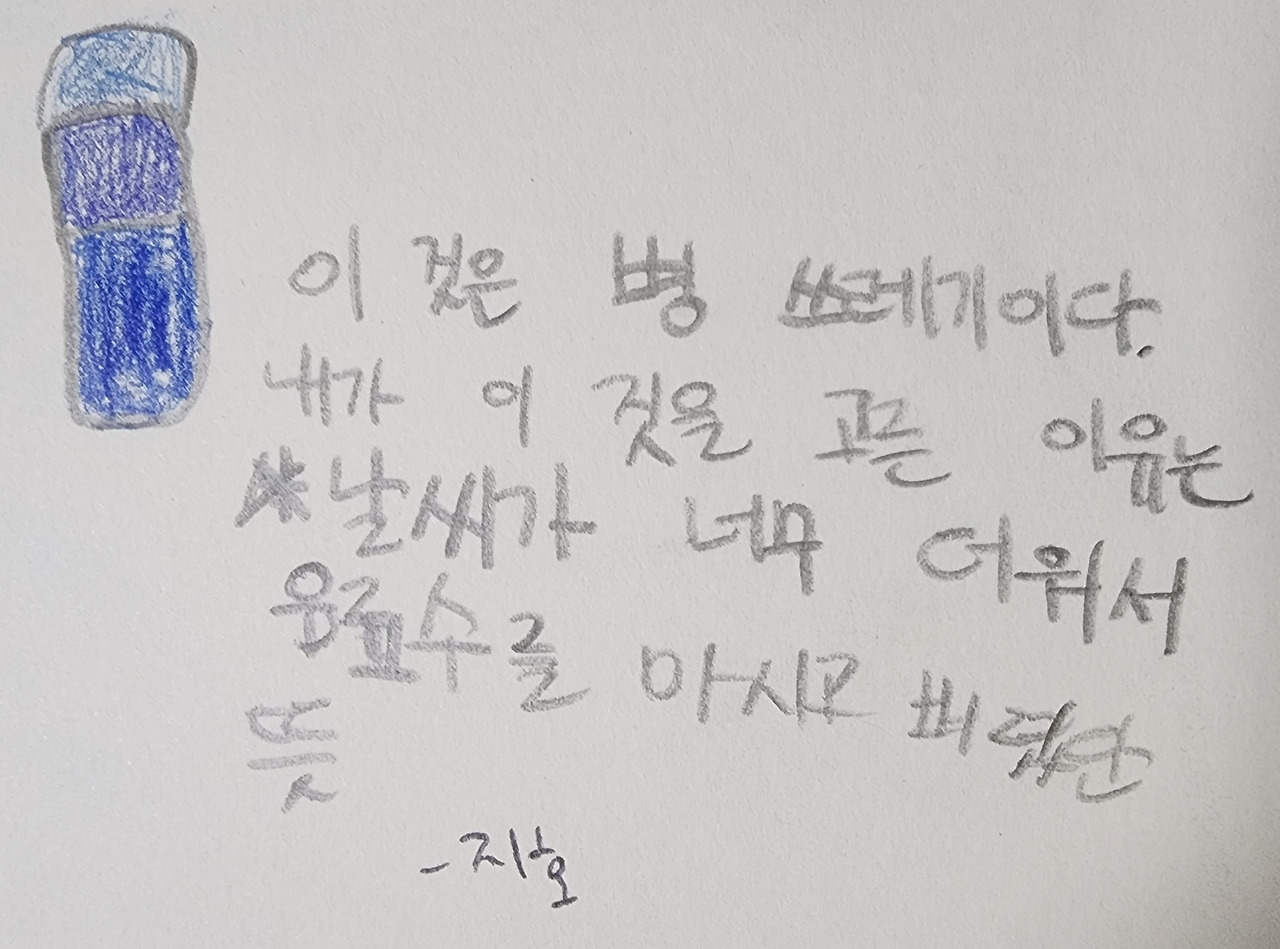 이 것은 병 쓰레기이다.
내가 이 것을 고른 이유는
날씨가 너무 더워서
음료수를 마시고 버렸단
뜻
-지호